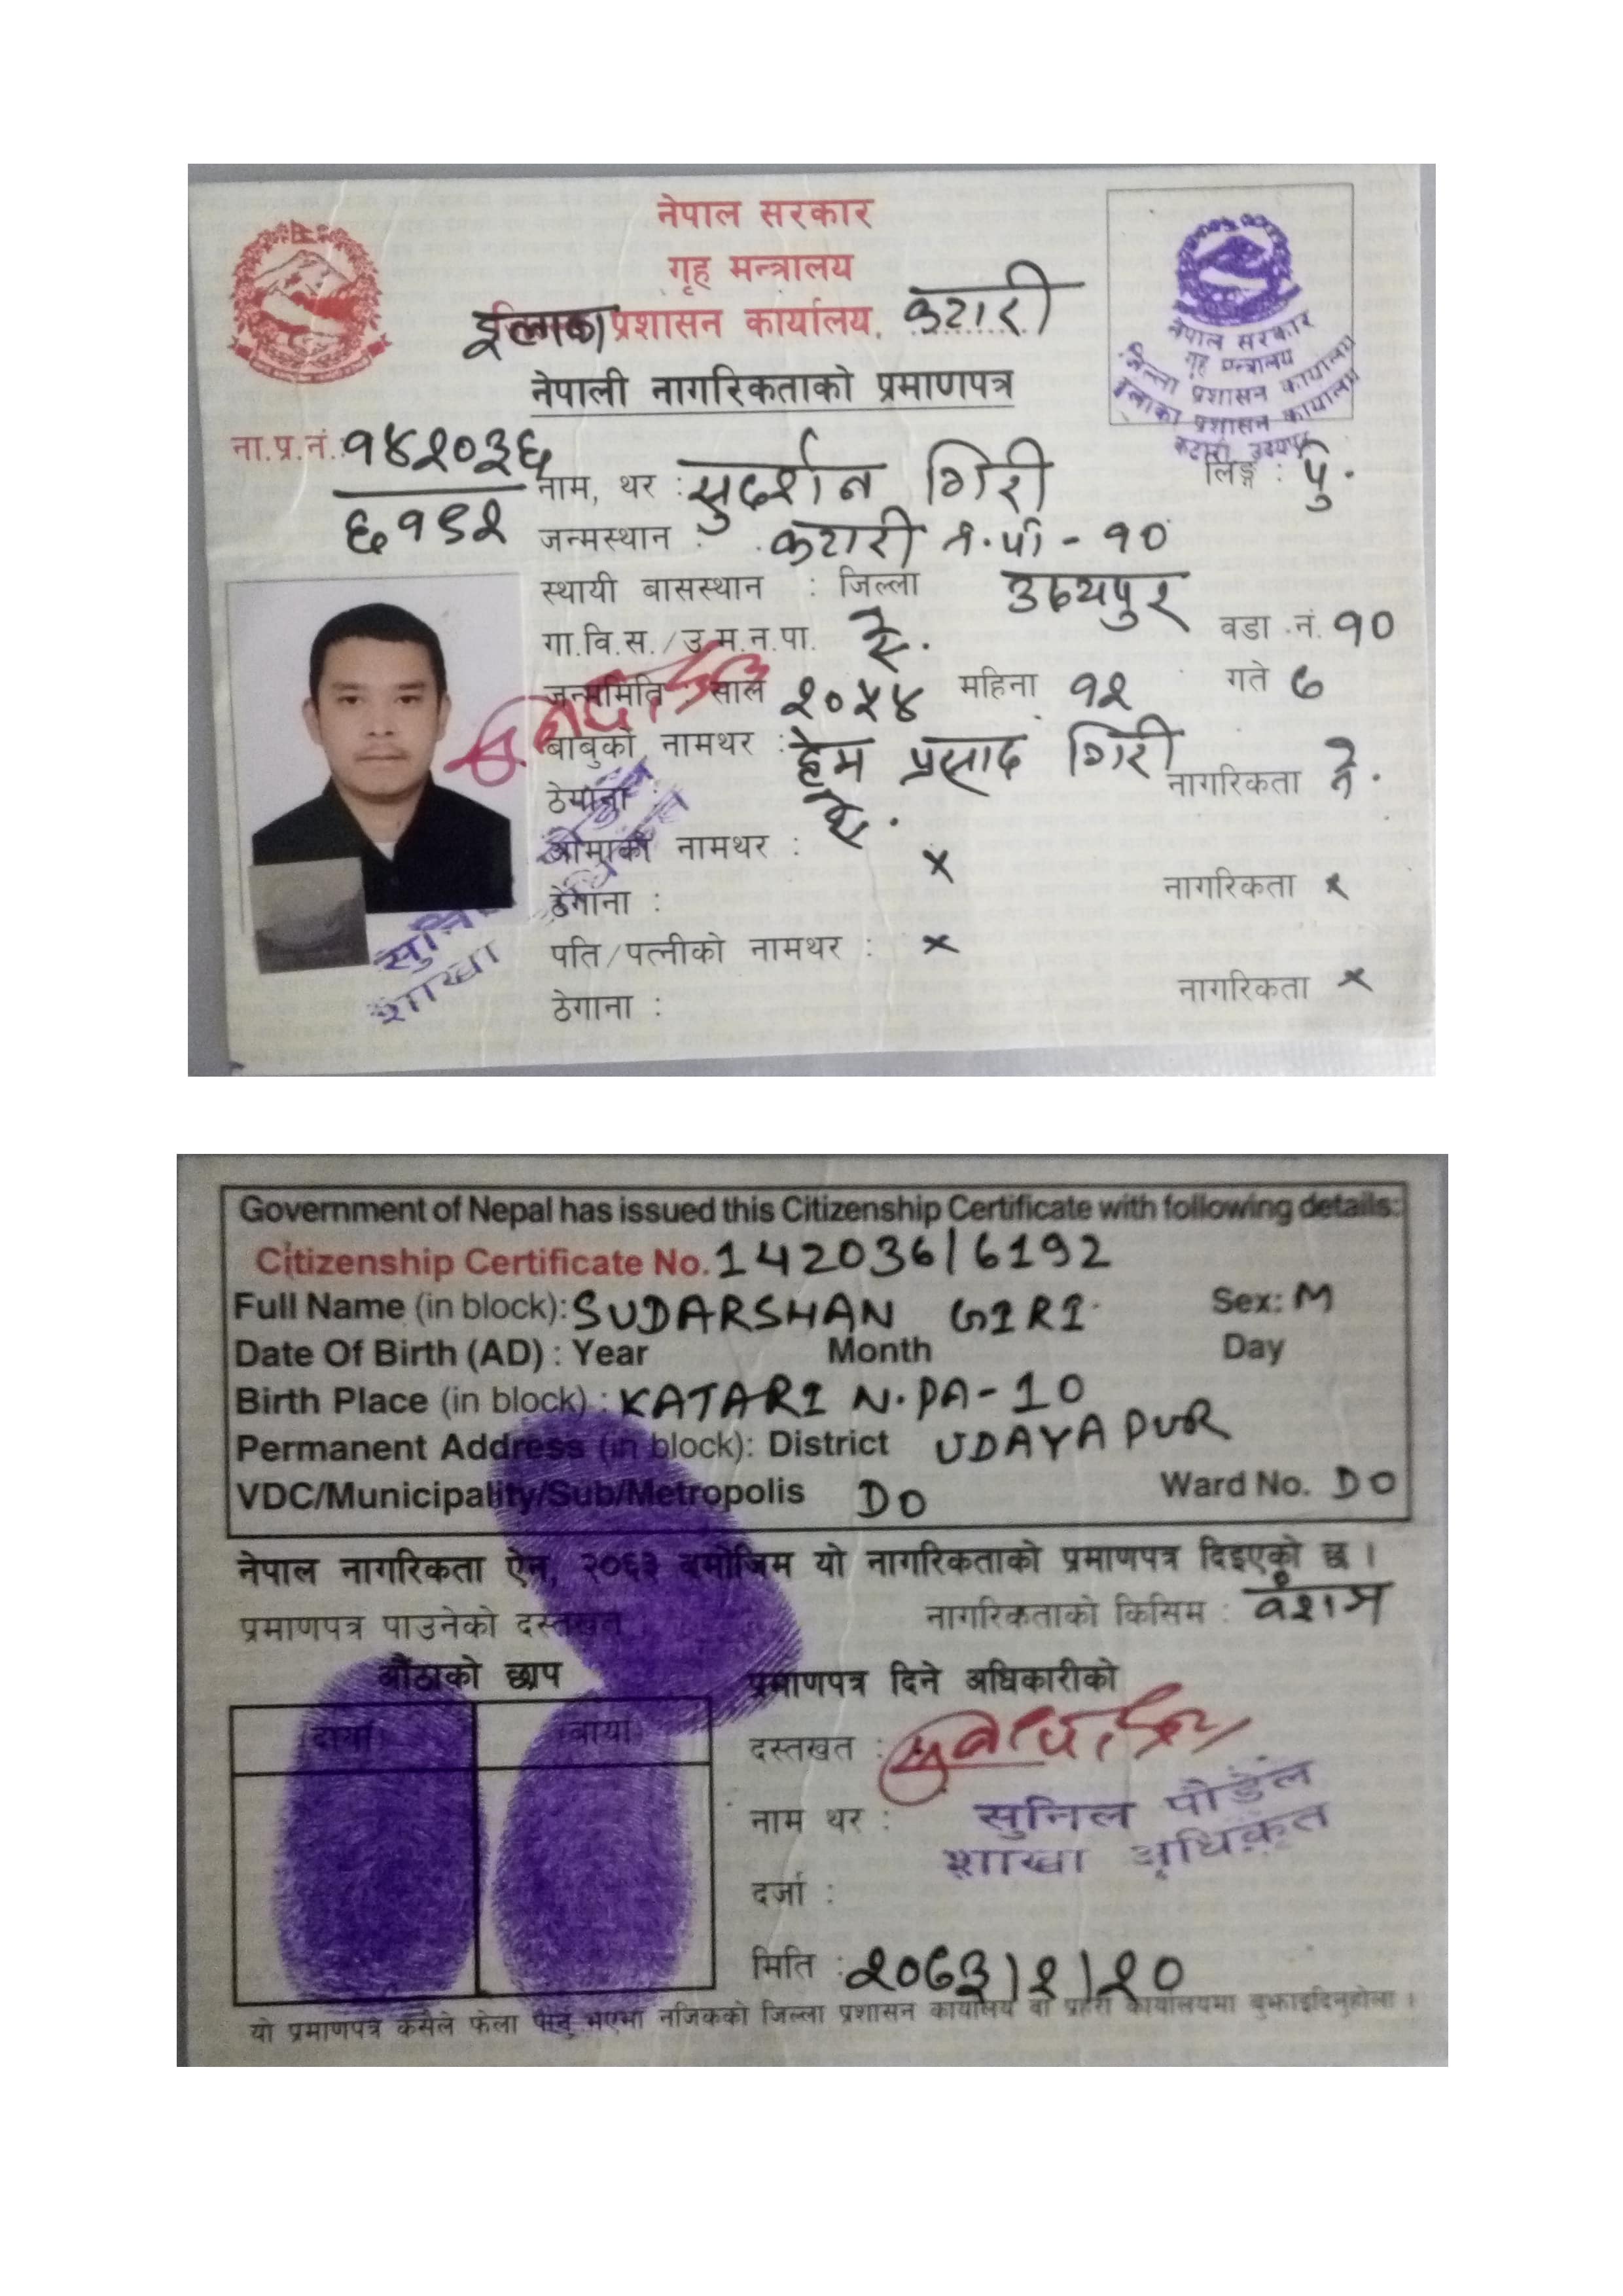 नेपाल सरकार
गृह मन्त्रालय
इलाका प्रशासन कार्यालय, कटारी
नेपाली नागरिकताको प्रमाणपत्र
नेपाल सरकार
गृह मन्त्रालय
जिल्ला प्रशासन कार्यालय
इलाका प्रशासन कार्यालय
कटारी, उदयपुर
ना.प्र.नं. १४२०३६
६१९२
नाम, थर : सुदर्शन गिरी लिङ्ग : पु.
जन्मस्थान : कटारी न.पा - १०
स्थायी बासस्थान : जिल्ला उदयपुर
गा.वि.स./उ.म.न.पा. ऐ. वडा नं. १०
जन्ममिति : साल २०५४ महिना १२ गते ७
बाबुको नामथर : हेम प्रसाद गिरी नागरिकता ने.
ठेगाना : ऐ.
आमाको नामथर : x
ठेगाना : नागरिकता x
पति/पत्नीको नामथर : x
ठेगाना : नागरिकता x
शाखा
Government of Nepal has issued this Citizenship Certificate with following details:
Citizenship Certificate No. 142036/6192
Full Name (in block): SUDARSHAN GIRI Sex: M
Date Of Birth (AD) : Year Month Day
Birth Place (in block) : KATARI N.PA-10
Permanent Address (in block): District UDAYAPUR
VDC/Municipality/Sub/Metropolis DO Ward No. DO
नेपाल नागरिकता ऐन, २०६३ बमोजिम यो नागरिकताको प्रमाणपत्र दिइएको छ ।
प्रमाणपत्र पाउनेको दस्तखत नागरिकताको किसिम : वंशज
औंठाको छाप प्रमाणपत्र दिने अधिकारीको
दायाँ बायाँ
दस्तखत :
नाम थर : सुनिल पौडेल
शाखा अधिकृत
दर्जा :
मिति : २०७३।२।२०
यो प्रमाणपत्र कसैले फेला पारेमा नजिकको जिल्ला प्रशासन कार्यालय वा प्रहरी कार्यालयमा बुझाइदिनुहोला ।